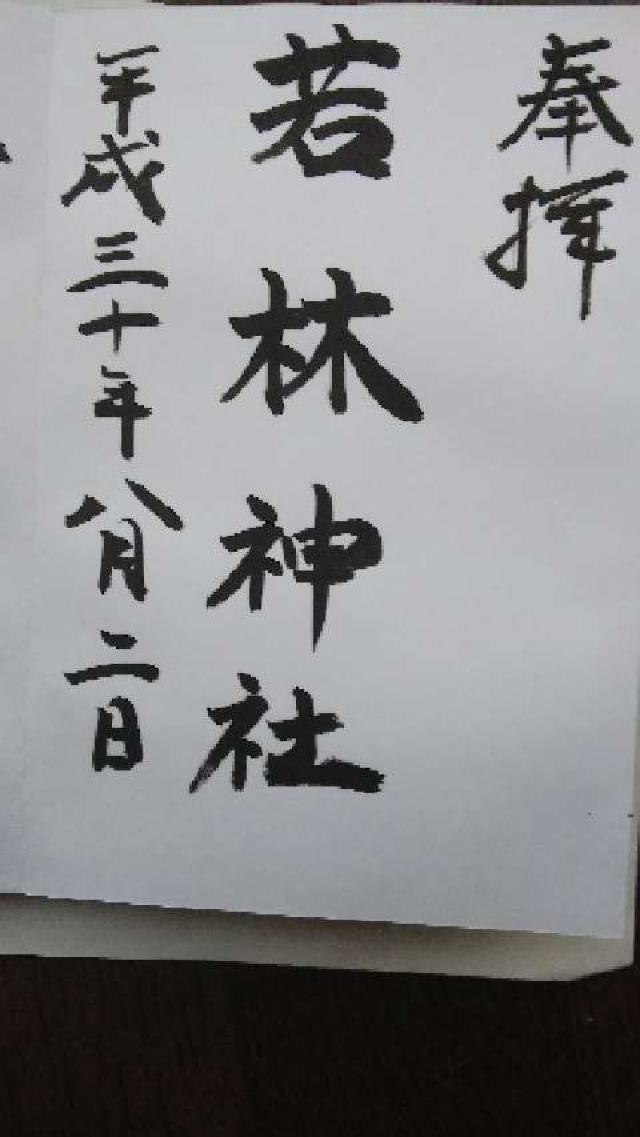 奉拝
若林神社
平成三十年八月二日